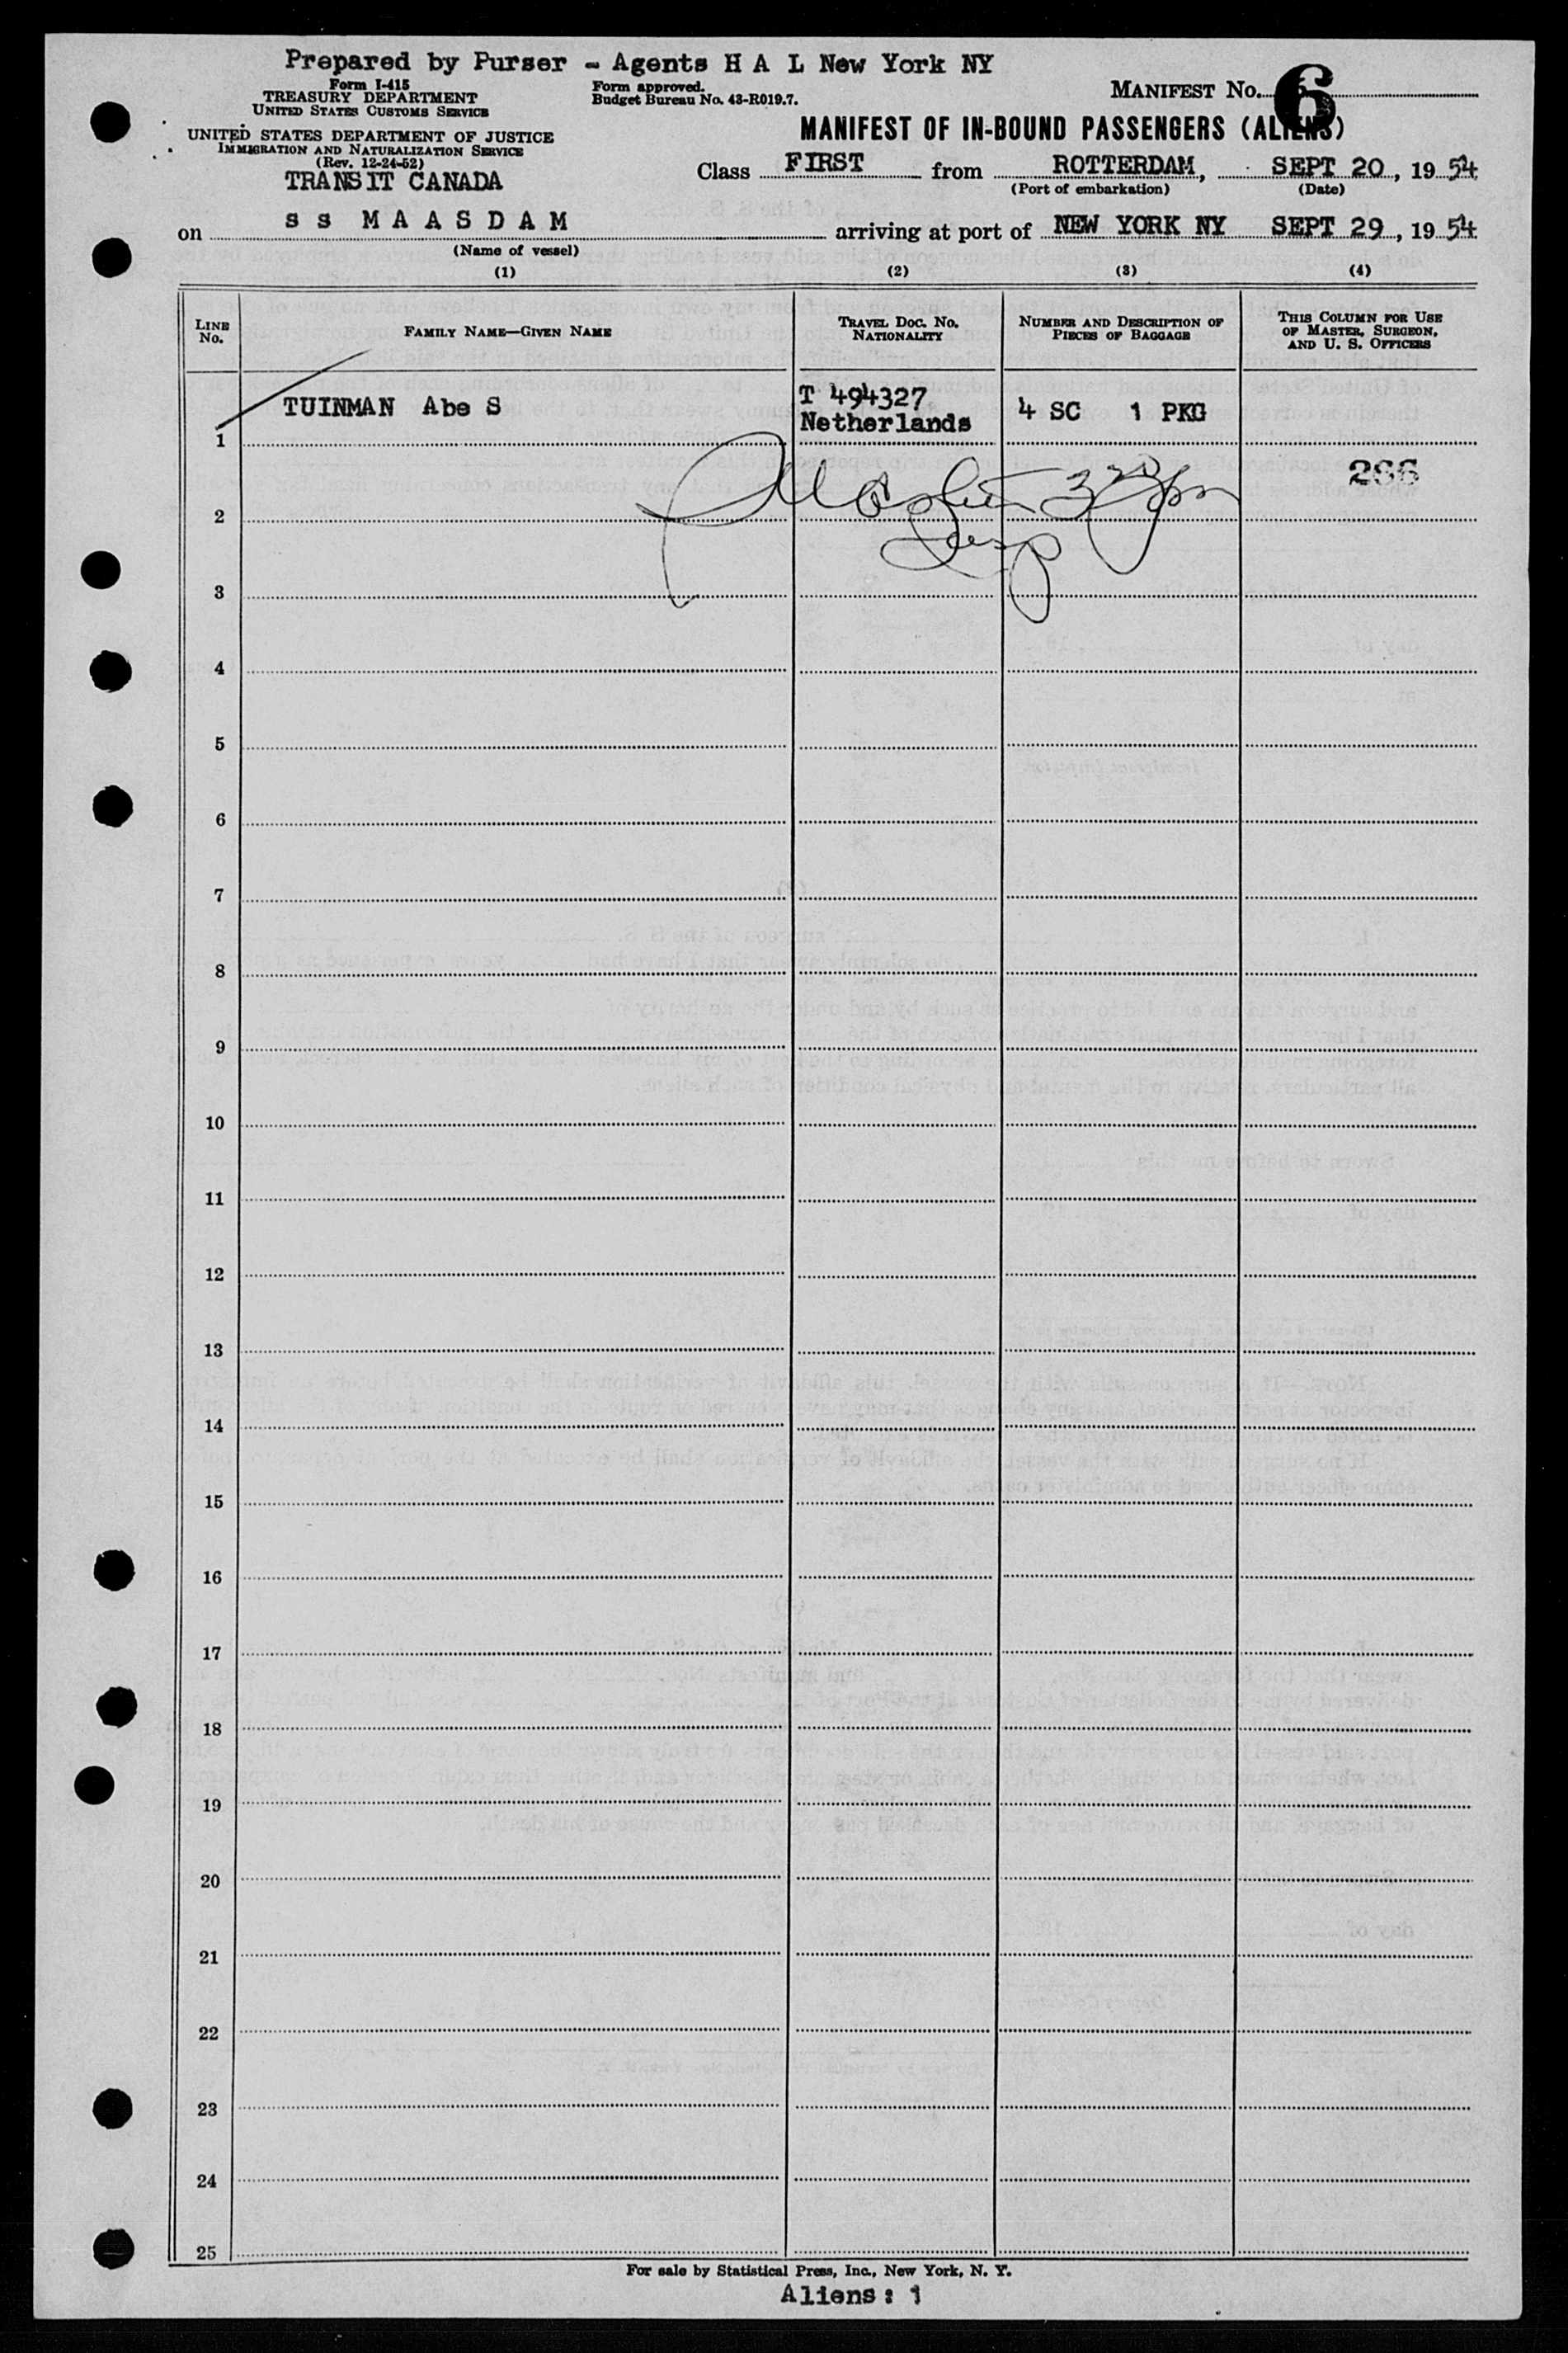 Prepared by Purser - Agents H A L New York NY
Form I-415
TREASURY DEPARTMENT
UNITED STATES CUSTOMS SERVICE
Form approved.
Budget Bureau No. 43-R019.7.
MANIFEST No. 6
UNITED STATES DEPARTMENT OF JUSTICE
IMMIGRATION AND NATURALIZATION SERVICE
(Rev. 12-24-52)
MANIFEST OF IN-BOUND PASSENGERS (ALIENS)
TRANSIT CANADA
Class FIRST from ROTTERDAM, SEPT 20, 1954
(Port of embarkation) (Date)
on s s M A A S D A M arriving at port of NEW YORK NY SEPT 29, 1954
(Name of vessel)
(1) (2) (3) (4)
LINE No.
FAMILY NAME—GIVEN NAME
TRAVEL DOC. NO. NATIONALITY
NUMBER AND DESCRIPTION OF PIECES OF BAGGAGE
THIS COLUMN FOR USE OF MASTER, SURGEON, AND U. S. OFFICERS
1 TUINMAN Abe S T 494327 Netherlands 4 SC 1 PKG
2
3
4
5
6
7
8
9
10
11
12
13
14
15
16
17
18
19
20
21
22
23
24
25
For sale by Statistical Press, Inc., New York, N. Y.
Aliens: 1